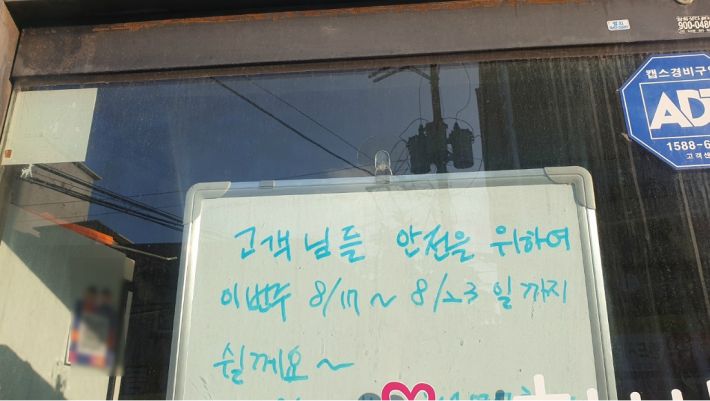 캡스경비구역
ADT
1588-6
고객센
900-048
고객님들 안전을 위하여
이번주 8/17 ~ 8/23 일까지
쉴께요 ~